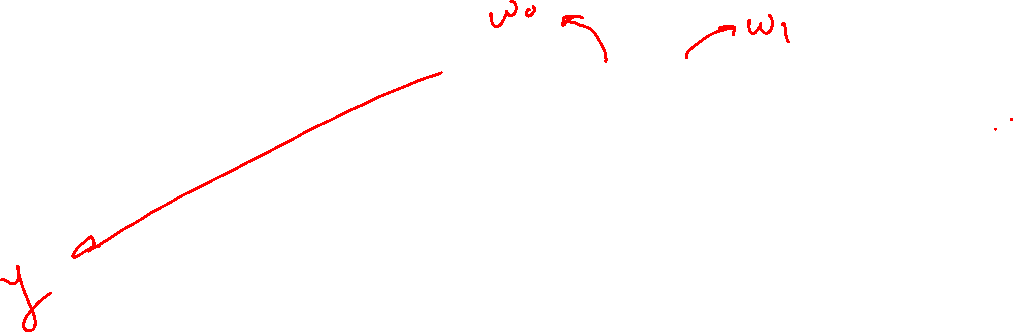 w₀ w₁
y